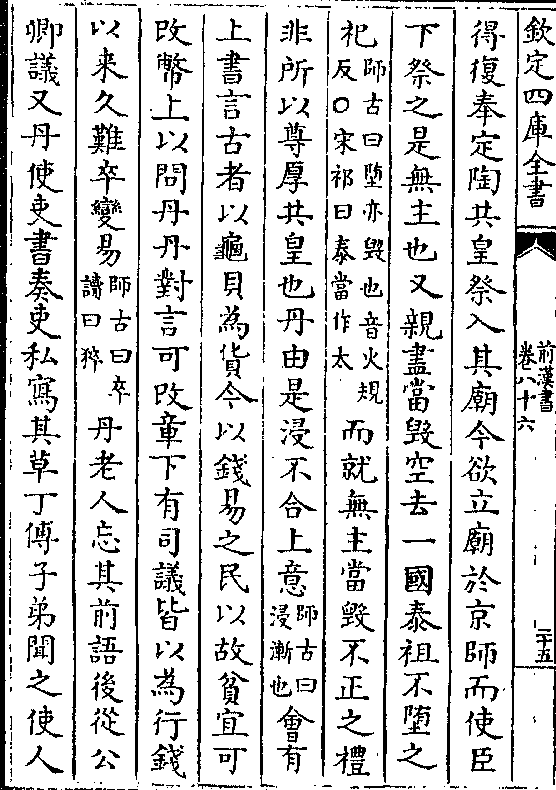 欽定四庫全書
前漢書
卷八十六
二十五
得復奉定陶共皇祭入其廟今欲立廟於京師而使臣
下祭之是無主也又親盡當毀空去一國泰祖不墮之
祀師古曰墮亦毀也音火規反○宋祁曰泰當作太而就無主當毀不正之禮
非所以尊厚共皇也丹由是浸不合上意師古曰浸漸也會有
上書言古者以龜貝為貨今以錢易之民以故貧宜可
改幣上以問丹丹對言可改章下有司議皆以為行錢
以来久難卒變易師古曰卒讀曰猝丹老人忘其前語後從公
卿議又丹使吏書奏吏私寫其草丁傅子弟聞之使人